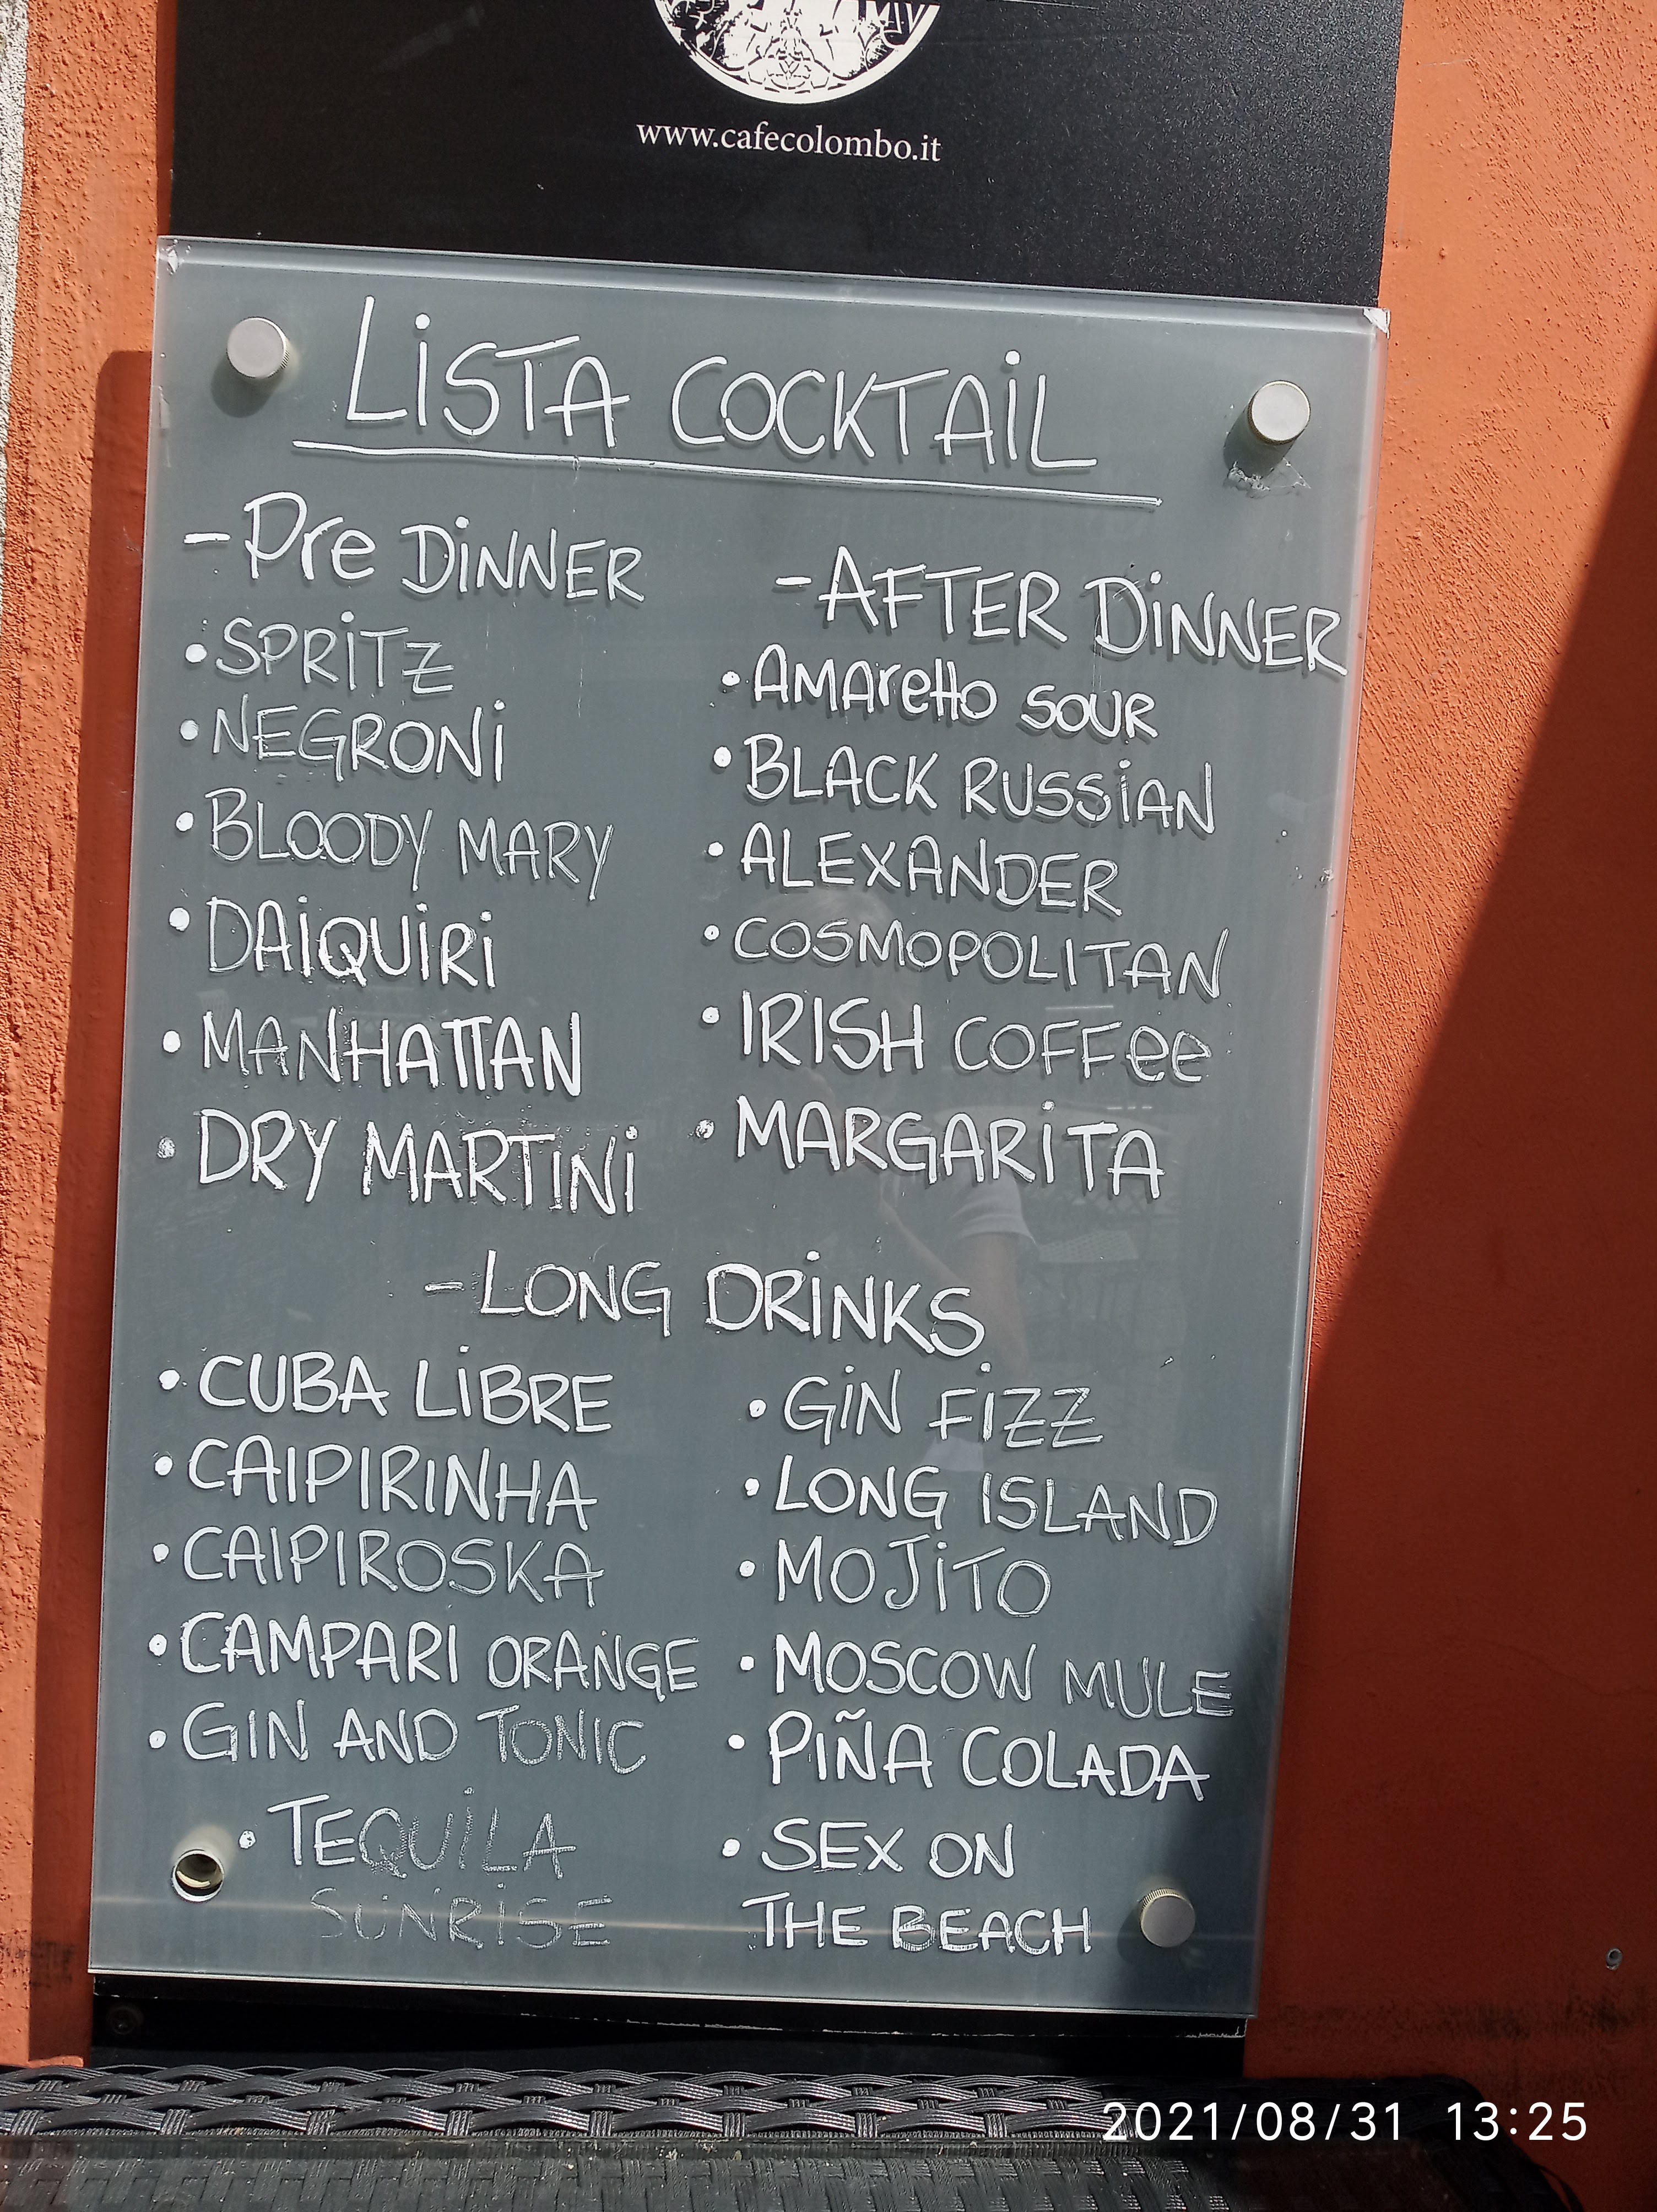 www.cafecolombo.it
LiSTA COCKTAiL
- Pre DiNNER
• SPRiTZ
• NEGRONi
• BLOODY MARY
• DAiQUiRi
• MANHATTAN
• DRY MARTINi
- AFTER DiNNER
• AMAretto SOUR
• BLACK RUSSiAN
• ALEXANDER
• COSMOPOLITAN
• IRISH COFFee
• MARGARiTA
- LONG DRiNKS
• CUBA LiBRE
• CAIPIRINHA
• CAIPIROSKA
• CAMPARI ORANGE
• GIN AND TONIC
• TEQUiLA
SUNRISE
• GiN FiZZ
• LONG ISLAND
• MOJiTO
• MOSCOW MULE
• PIÑA COLADA
• SEX ON
THE BEACH
2021/08/31 13:25